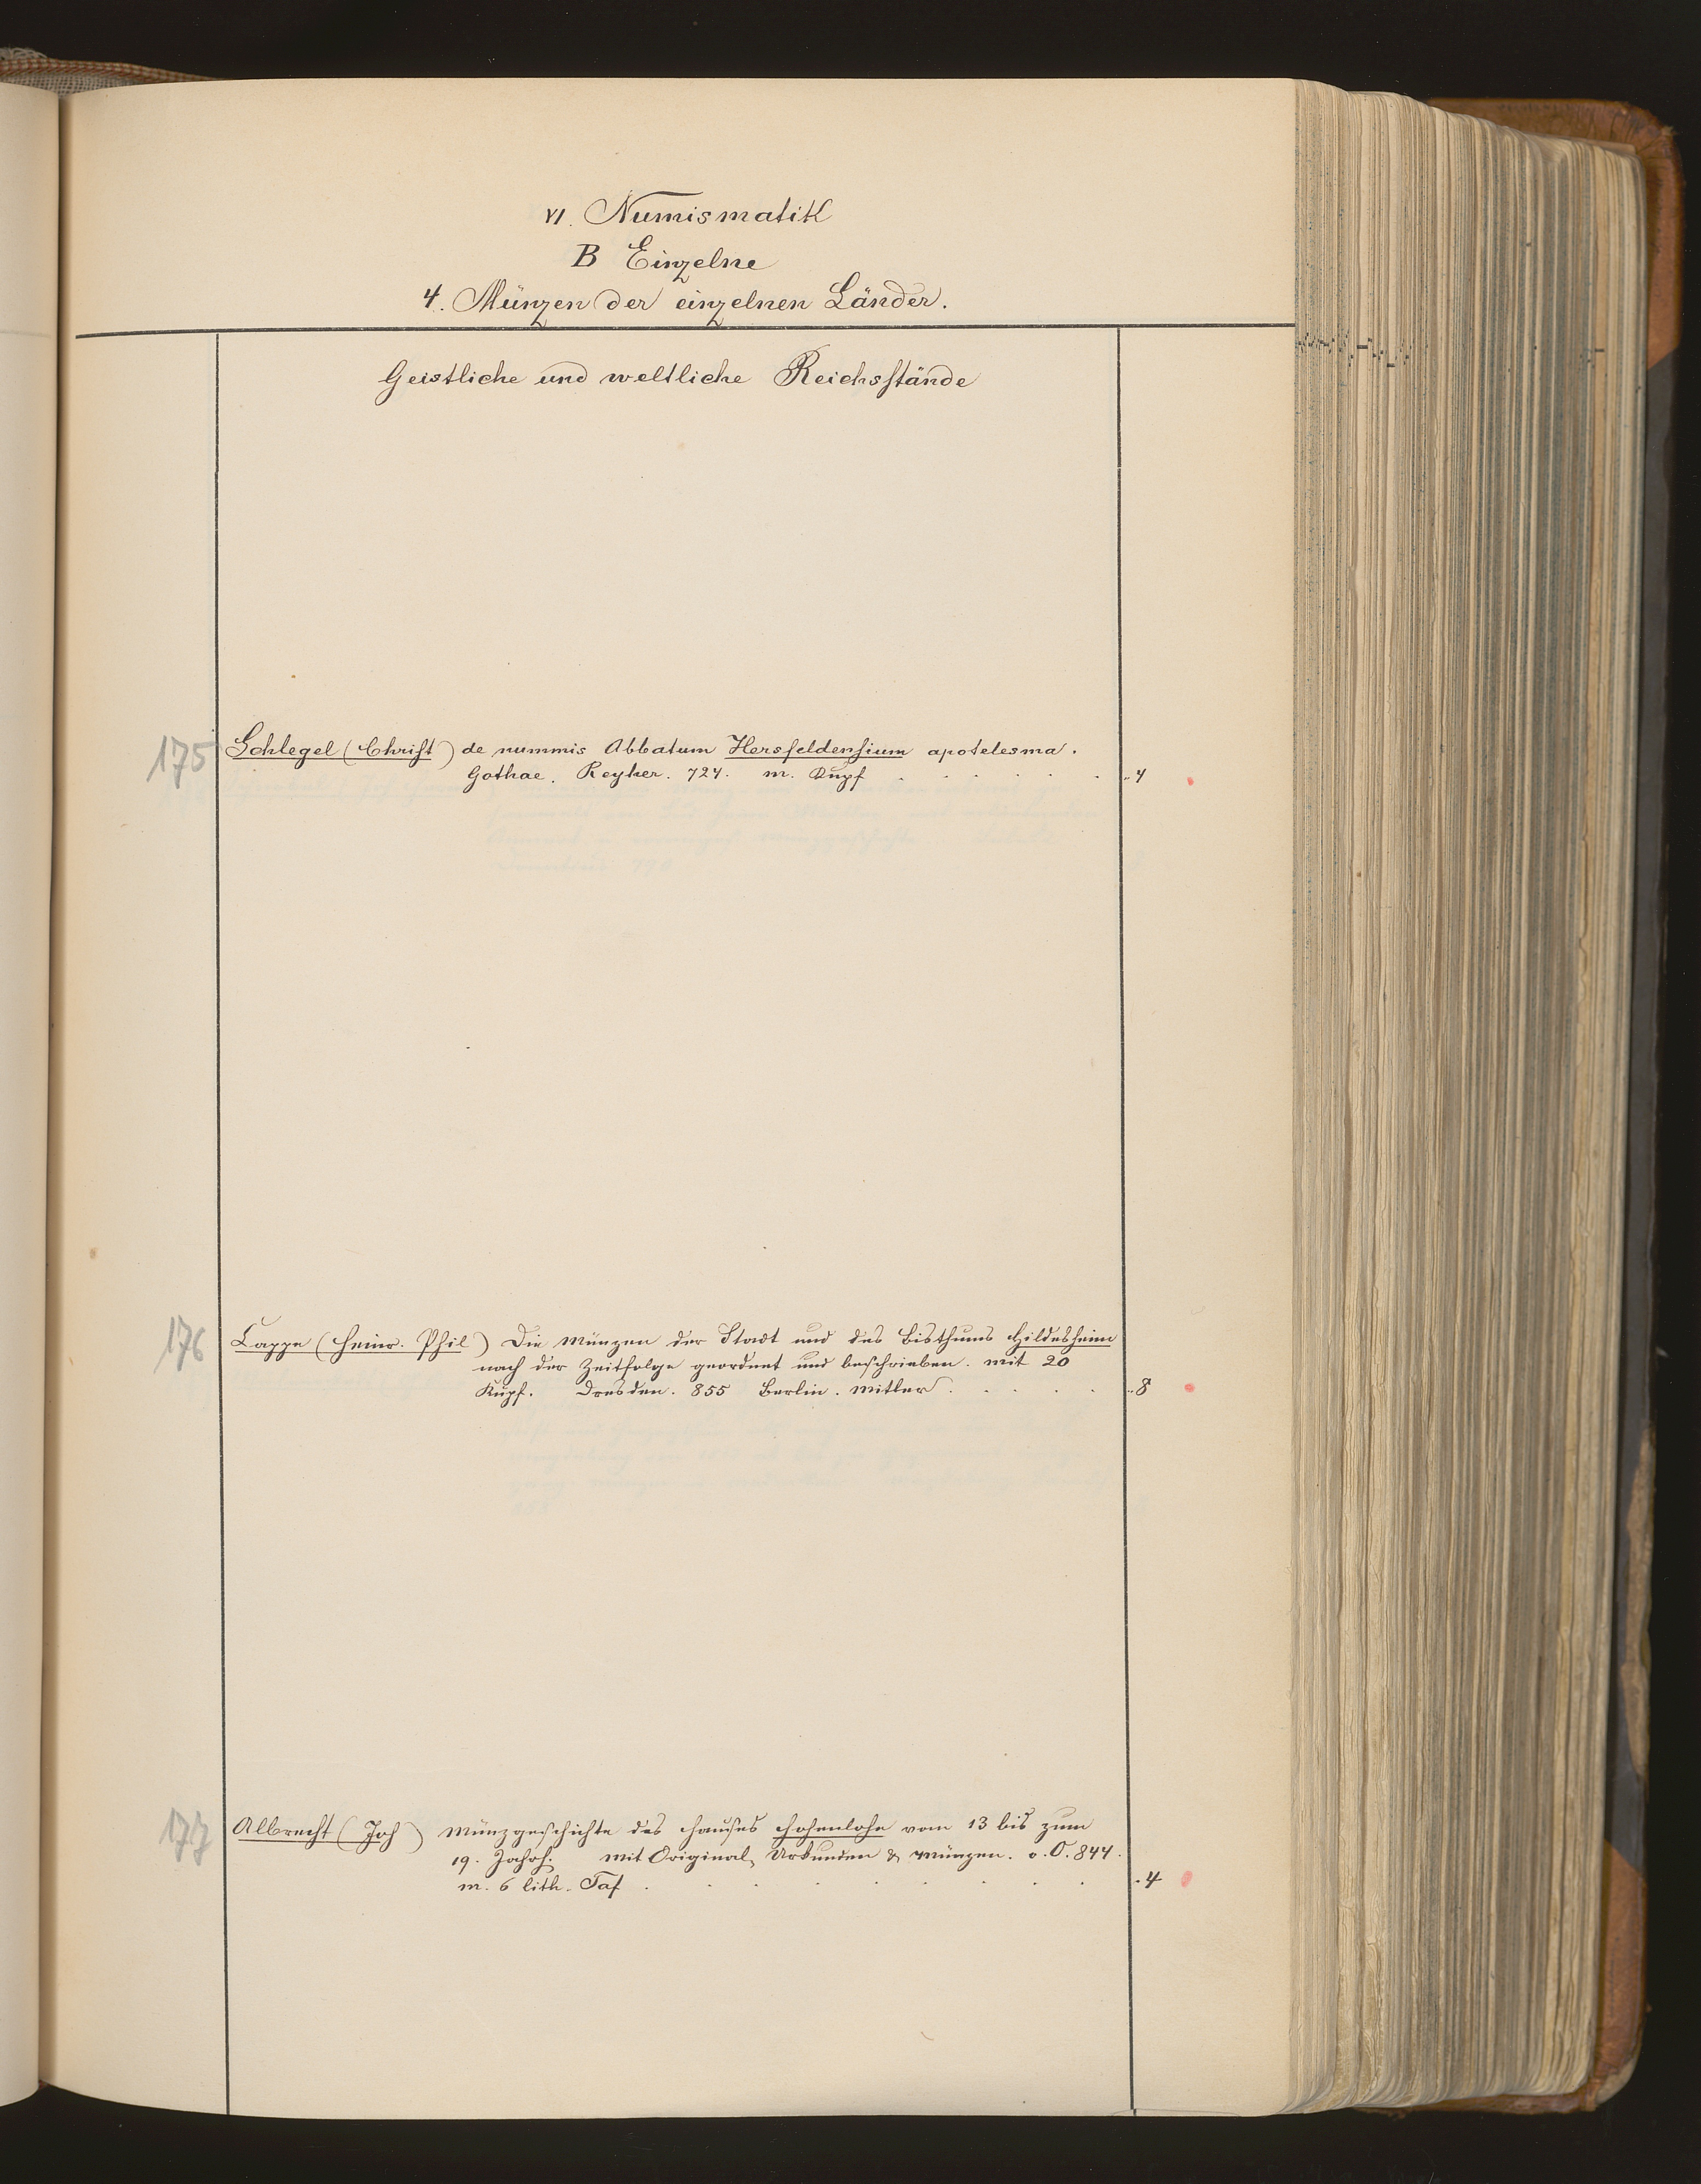 VI. Numismatik
B Einzelne
4. Münzen der einzelnen Länder.
Geistliche und weltliche Reichsstände
175 Schlegel (Christ) de nummis Abbatum Hersfeldensium apotelesma.
Gothae. Reyher. 724. m. Kupf . . . . . . ..4
176 Cappe (Heinr. Phil) Die Münzen der Stadt und des Bisthums Hildesheim
nach der Zeitfolge geordnet und beschrieben. mit 20
Kupf. Dresden. 855 Berlin. Mitler . . . . . ..8
177 Albrecht (Joh) Münzgeschichte des Hauses Hohenlohe vom 13 bis zum
19. Jahrh. mit Original, Urkunden & Münzen. o. O. 844.
m. 6 lith. Taf . . . . . . . . .4